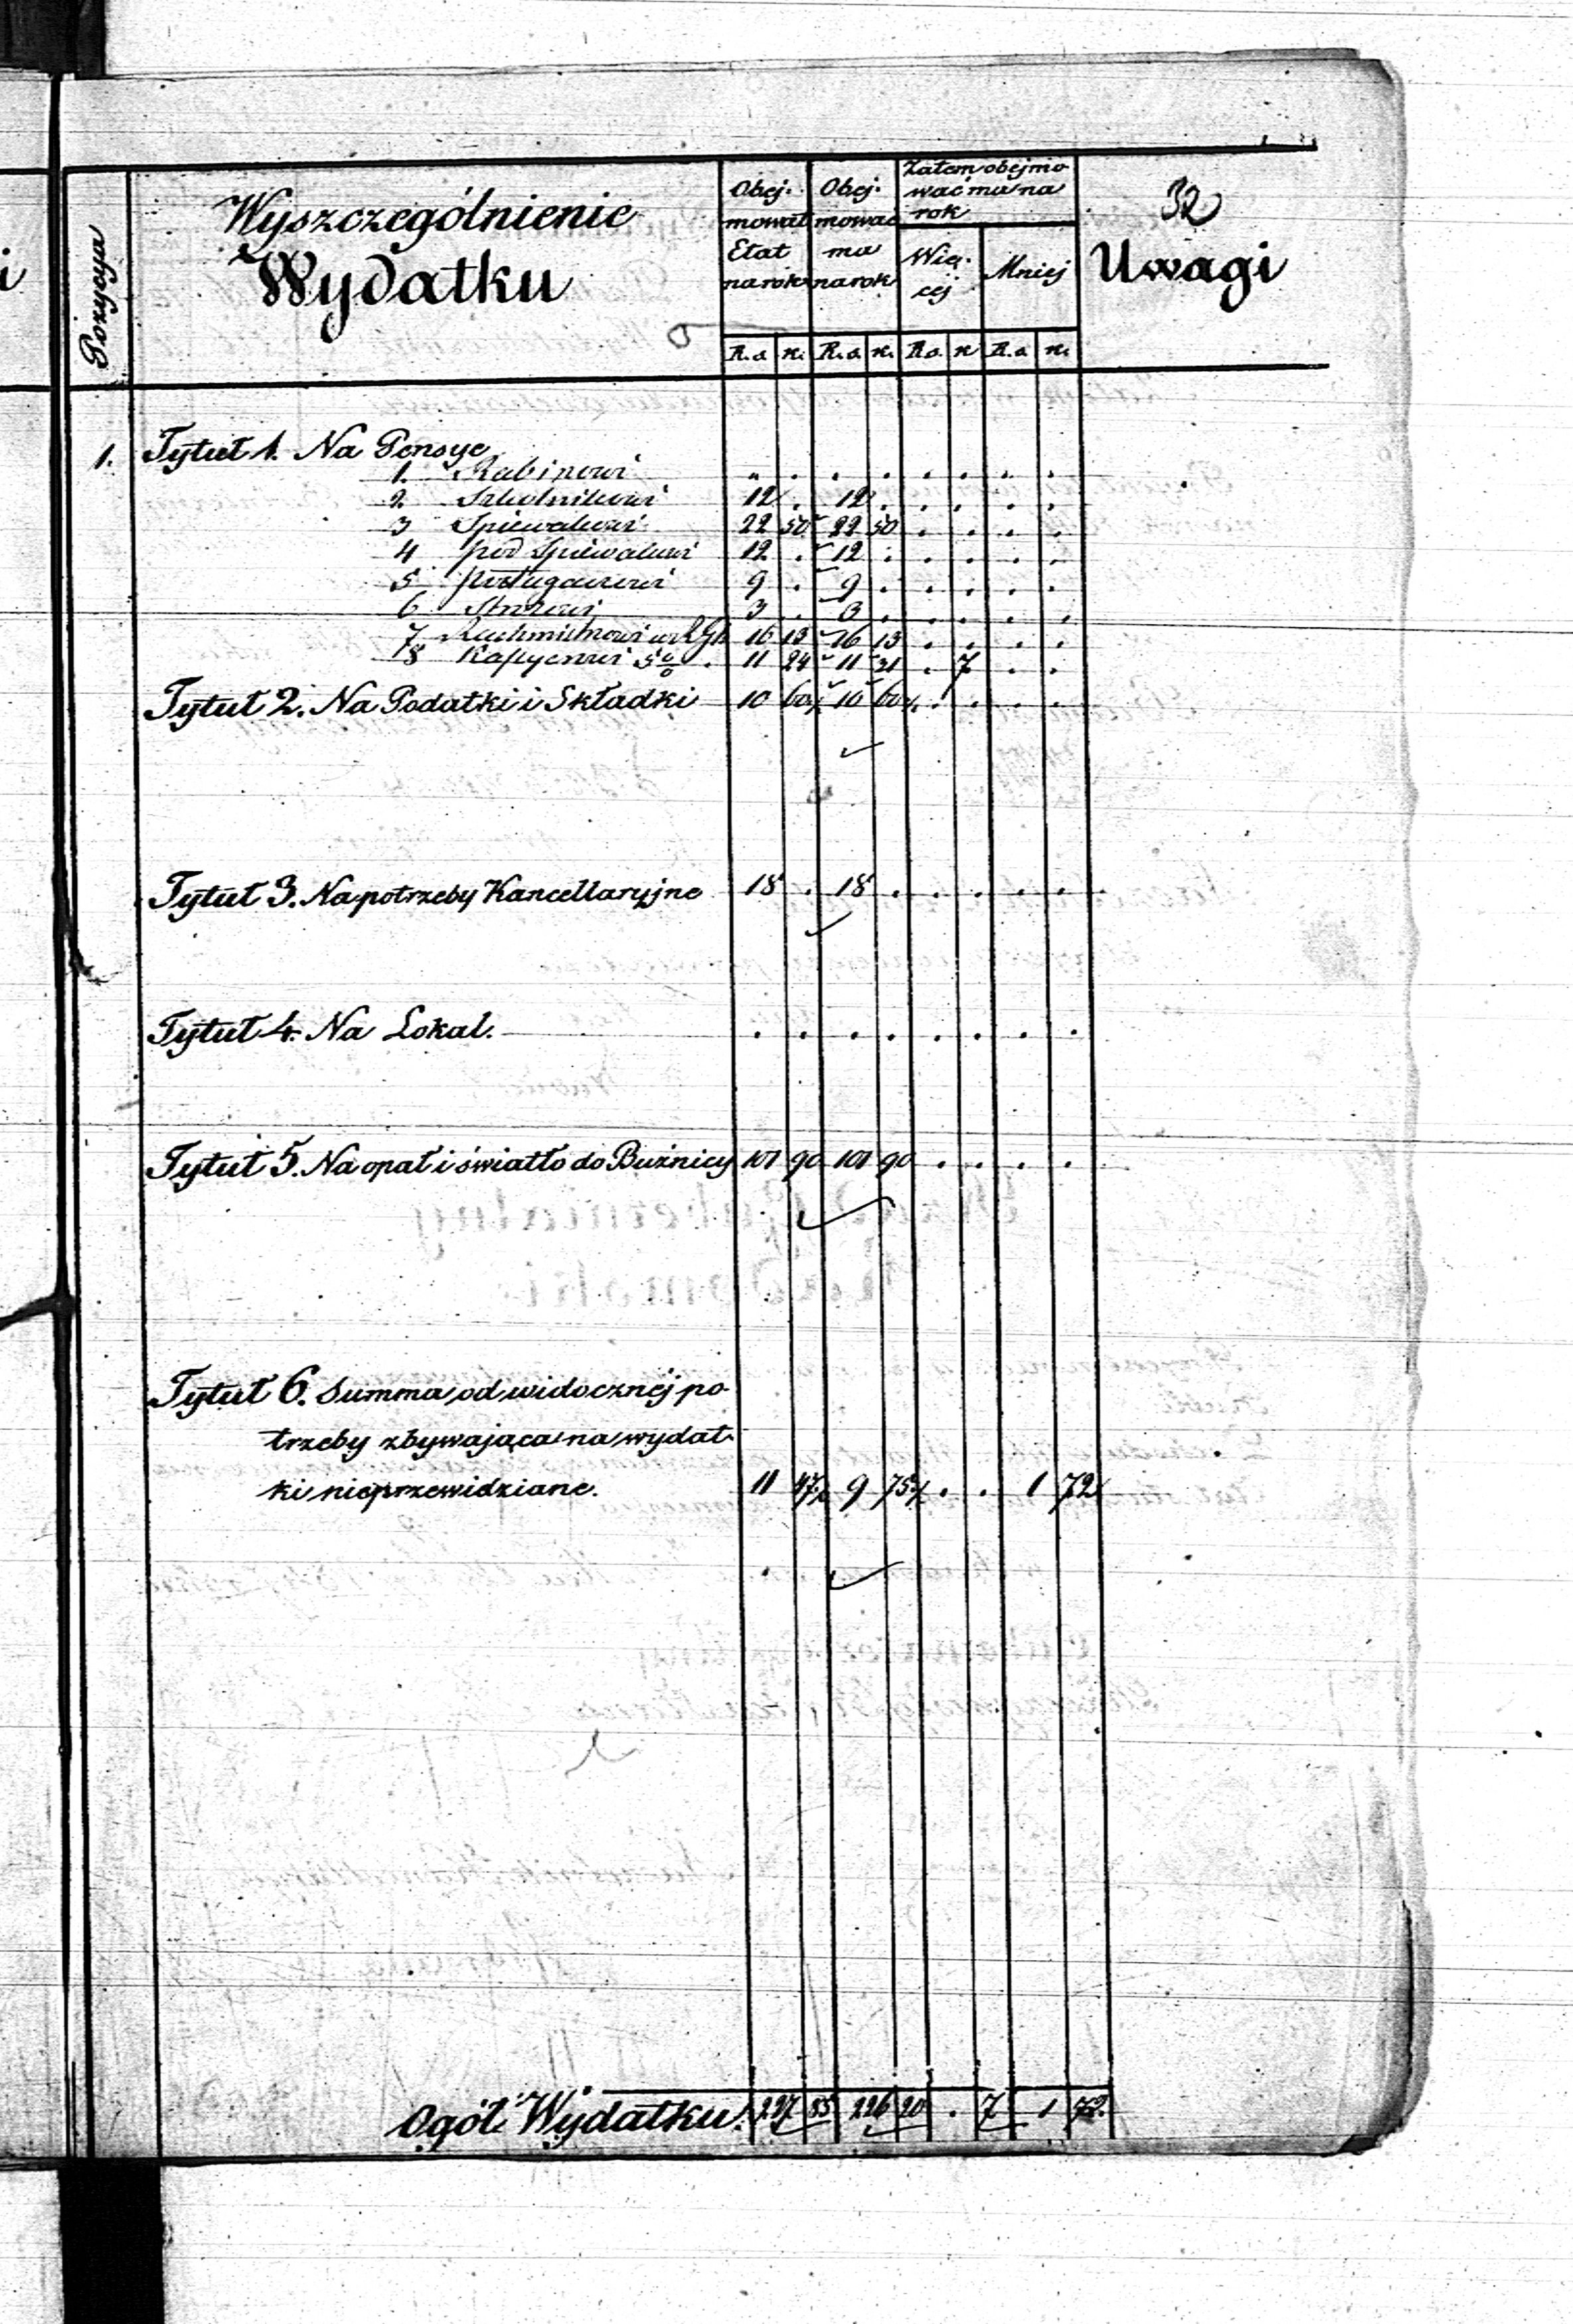 32
Pozycya
Wyszczególnienie
Wydatku
Obej-
mował
Etat
na rok
Obej-
mować
ma
na rok
Zatem obejmo
wać ma na
rok
Wię-
cej
Mniej
Uwagi
R.s. k. R.s. k. R.s. k. R.s. k.
1. Tytuł 1. Na Pensye
1. Rabinowi " . . . . . " .
2. Szkolnikowi 12 . 12 . . . . .
3 Spiewakowi 22 50 22 50 . . . .
4 pod Spiewakowi 12 . 12 . . . . .
5 9 . 9 . . . . .
6 Stróżowi 3 . 3 . . . . .
7 16 13 16 13 . . . .
8 Kassyerowi 5% 11 24 11 31 . 7 . .
Tytuł 2. Na Podatki i Składki 10 60½ 10 60½ . . . .
Tytuł 3. Na potrzeby Kancellaryjne 18 . 18 . . . . .
Tytuł 4. Na Lokal. . . . . . . . .
Tytuł 5. Na opał i światło do Bużnicy 101 90 101 90 . . . .
Tytuł 6. Summa od widocznéj po-
trzeby zbywająca na wydat-
ki nieprzewidziane. 11 47½ 9 75½ . . 1 72
Ogół Wydatku. 227 85 226 20 . 7 1 72